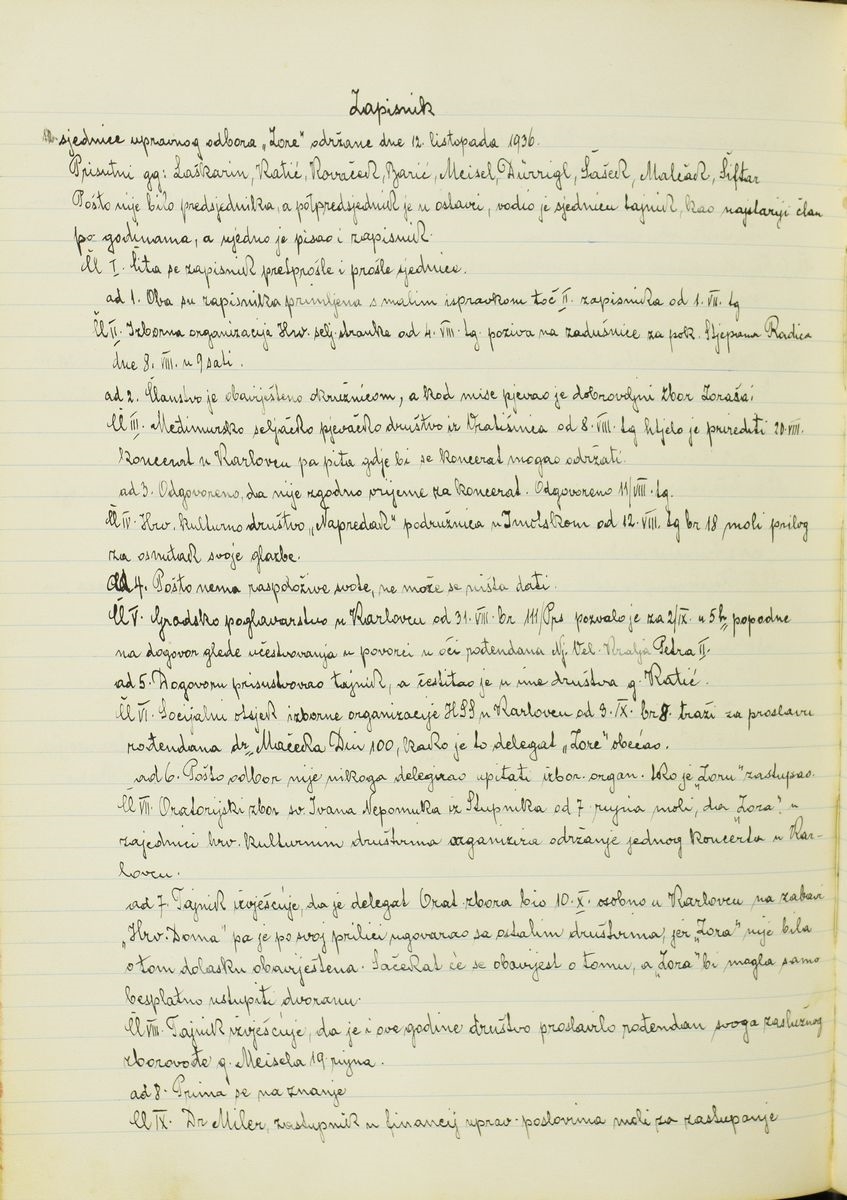 Zapisnik
sjednice upravnog odbora „Zore" održane dne 12. listopada 1936.
Prisutni gg: Laškarin, Katić, Kovaček, Barić, Meisel, Dürrigl, Šašek, Malčak, Šiftar
Pošto nije bilo predsjednika, a potpredsjednik je u ostavci, vodio je sjednicu tajnik, kao najstariji član
po godinama, a ujedno je pisao i zapisnik.
Čl I. Čita se zapisnik pretprošle i prošle sjednice.
ad 1. Oba su zapisnika primljena s malim ispravkom toč II. zapisnika od 1. VII. tg
Čl II. Izborna organizacija Hrv. selj. stranke od 4. VIII. tg. poziva na zadušnice za pok. Stjepana Radića
dne 8. VIII. u 9 sati.
ad 2. Članstvo je obaviješteno okružnicom, a kod mise pjevao je dobrovoljni zbor Zoraša.
Čl III. Međimursko seljačko pjevačko društvo iz Vratišinca od 8. VIII. tg htjelo je prirediti 20. VIII.
koncerat u Karlovcu pa pita gdje bi se koncerat mogao održati.
ad 3. Odgovoreno, da nije zgodno vrijeme za koncerat. Odgovoreno 11/VIII. tg.
Čl IV. Hrv. kulturno društvo „Napredak" podružnica u Imotskom od 12. VIII. tg br 18 moli prilog
za osnutak svoje glazbe.
ad 4. Pošto nema raspoložive svote, ne može se ništa dati.
Čl V. Gradsko poglavarstvo u Karlovcu od 31. VIII. br 111/Prs pozvalo je za 2/IX. u 5 h popodne
na dogovor glede učestvovanja u povorci u oči rođendana Nj. Vel. Kralja Petra II.
ad 5. Dogovoru prisustvovao tajnik, a čestitao je u ime društva g. Katić.
Čl VI. Socijalni otsjek izborne organizacije HSS u Karlovcu od 3. IX. br 8. traži za proslavu
rođendana dr Mačeka Din 100, kako je to delegat „Zore" obećao.
ad 6. Pošto odbor nije nikoga delegirao upitati izbor. organ. tko je „Zoru" zastupao.
Čl VII. Oratorijski zbor sv. Ivana Nepomuka iz Stupnika od 7. rujna moli, da „Zora" u
zajednici hrv. kulturnim društvima organizira održanje jednog koncerta u Kar-
lovcu.
ad 7. Tajnik izvješćuje, da je delegat Orat. zbora bio 10. X. osobno u Karlovcu na zabavi
„Hrv. Doma" pa je po svoj prilici ugovarao sa ostalim društvima, jer „Zora" nije bila
o tom dolasku obaviještena. Sačekat će se obavijest o tomu, a „Zora" bi mogla samo
besplatno ustupiti dvoranu.
Čl VIII. Tajnik izvješćuje, da je i ove godine društvo proslavilo rođendan svoga zaslužnog
zborovođe g. Meisela 19. rujna.
ad 8. Prima se na znanje
Čl IX. Dr Miler, zastupnik u financij uprav. poslovima moli za zastupanje